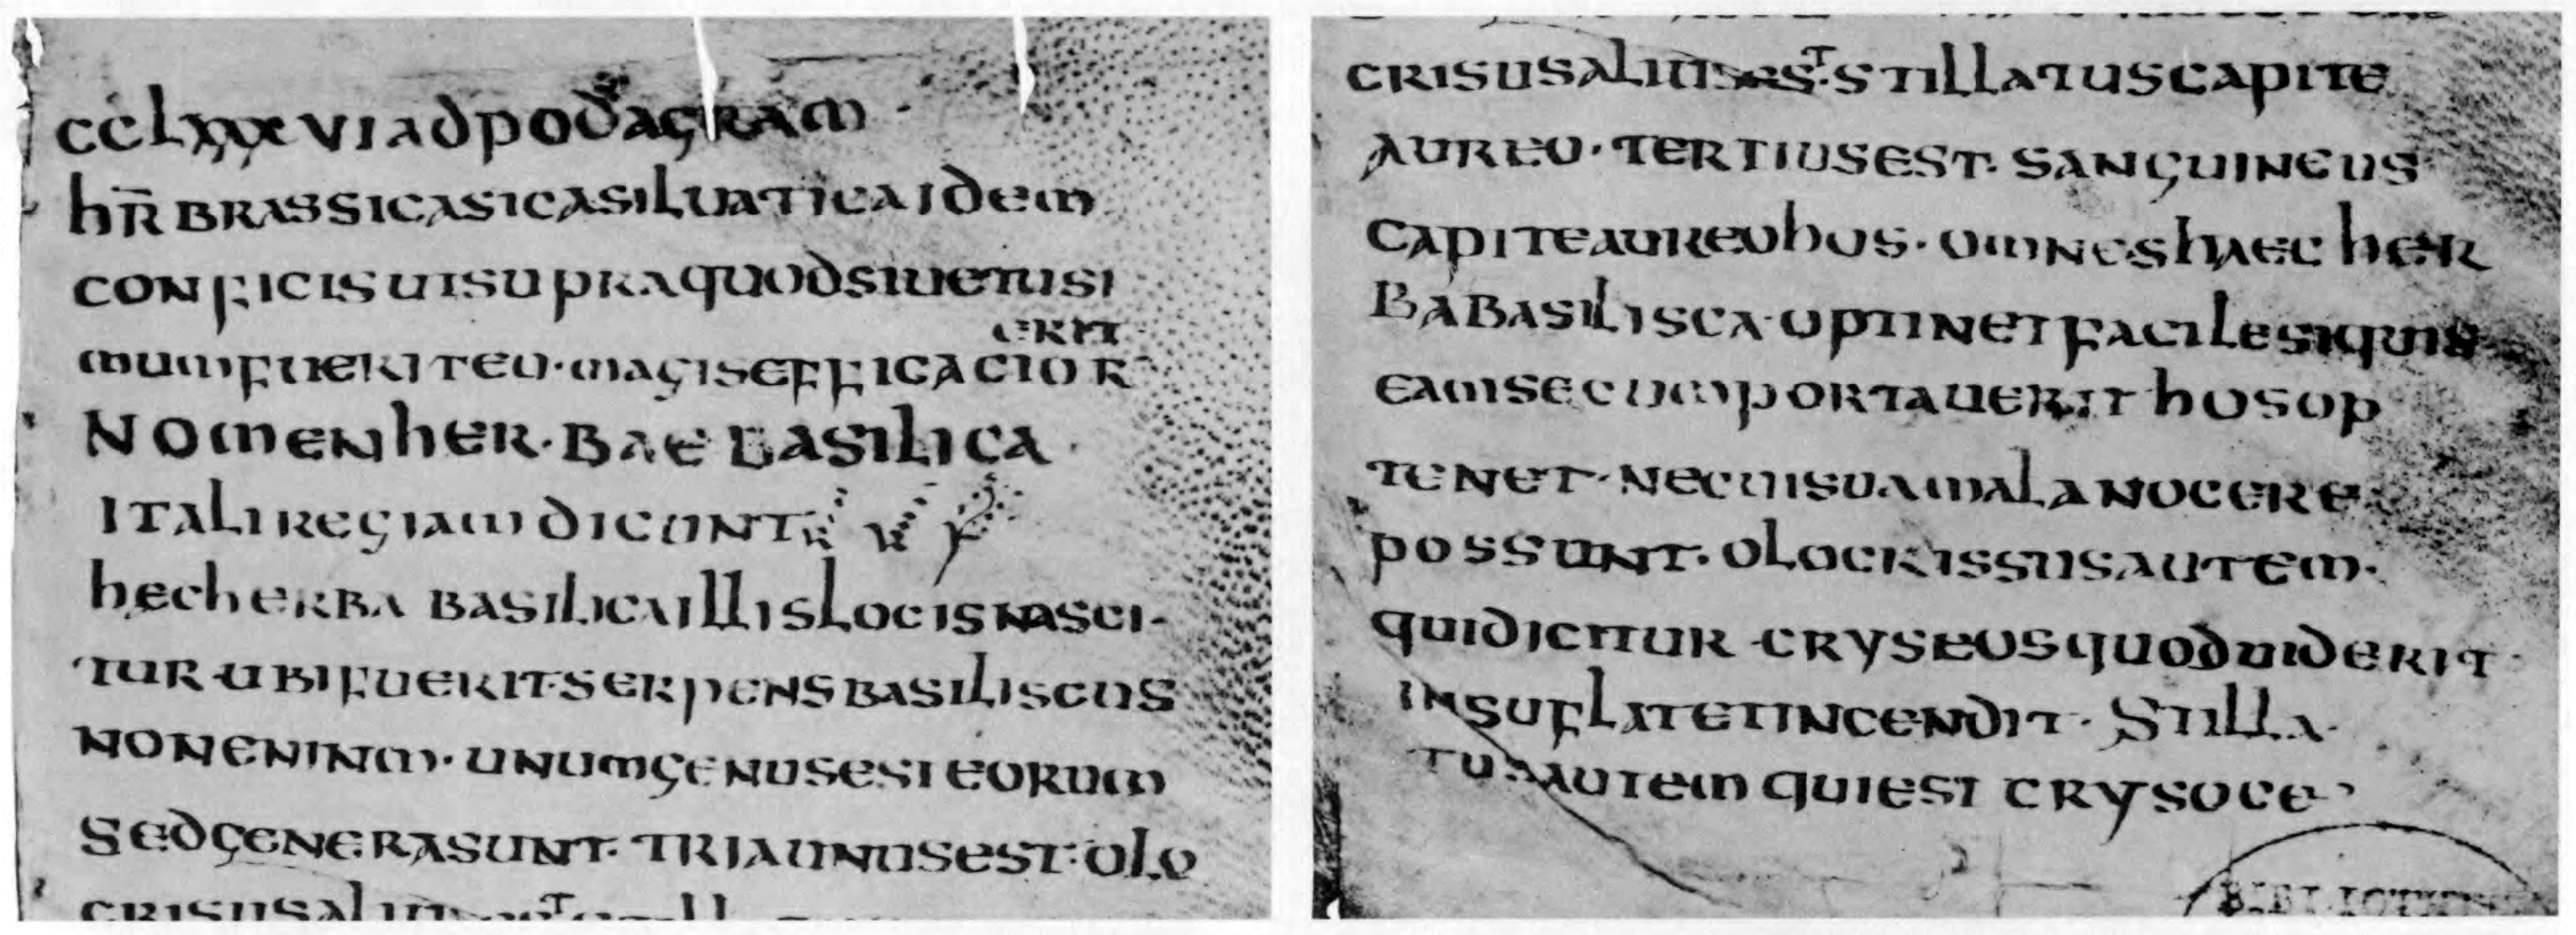 CCLXXXVIADPODAGRAM·
hR̄BRASSICASICASILUATICAIDEM
CONFICISUTSUPRAQUODSIUETUSI
ERIT
MUMFUERITEO·MAGISEFFICACIOR
NOMENHER·BAEBASILICA·
ITALIREGIAMDICUNT
hecherba basilicaillislocisnasci-
TUR·UBIFUERIT·SERPENSBASILISCUS
NONENINM·UNUMGENUSESTEORUM
SEDGENERASUNT·TRIAUNUSEST·OLO
CRISUSALIUSEST·STILLATUSCAPITE
AUREO·TERTIUSEST·SANGUINEUS
CAPITEAUREOhOS·OMNEShAEC hER
BABASILISCA·OPTINETFACILESIQUIS
EAMSECUMPORTAUERIT hOSOP
TENET·NECUISUAMALANOCERE
POSSUNT·OLOCRISSUSAUTEM·
QUIDICITUR·CRYSEOSQUODUIDERIT·
INSUFLATETINCENDIT·STILLA·
TUSAUTEM QUIEST CRYSOCE